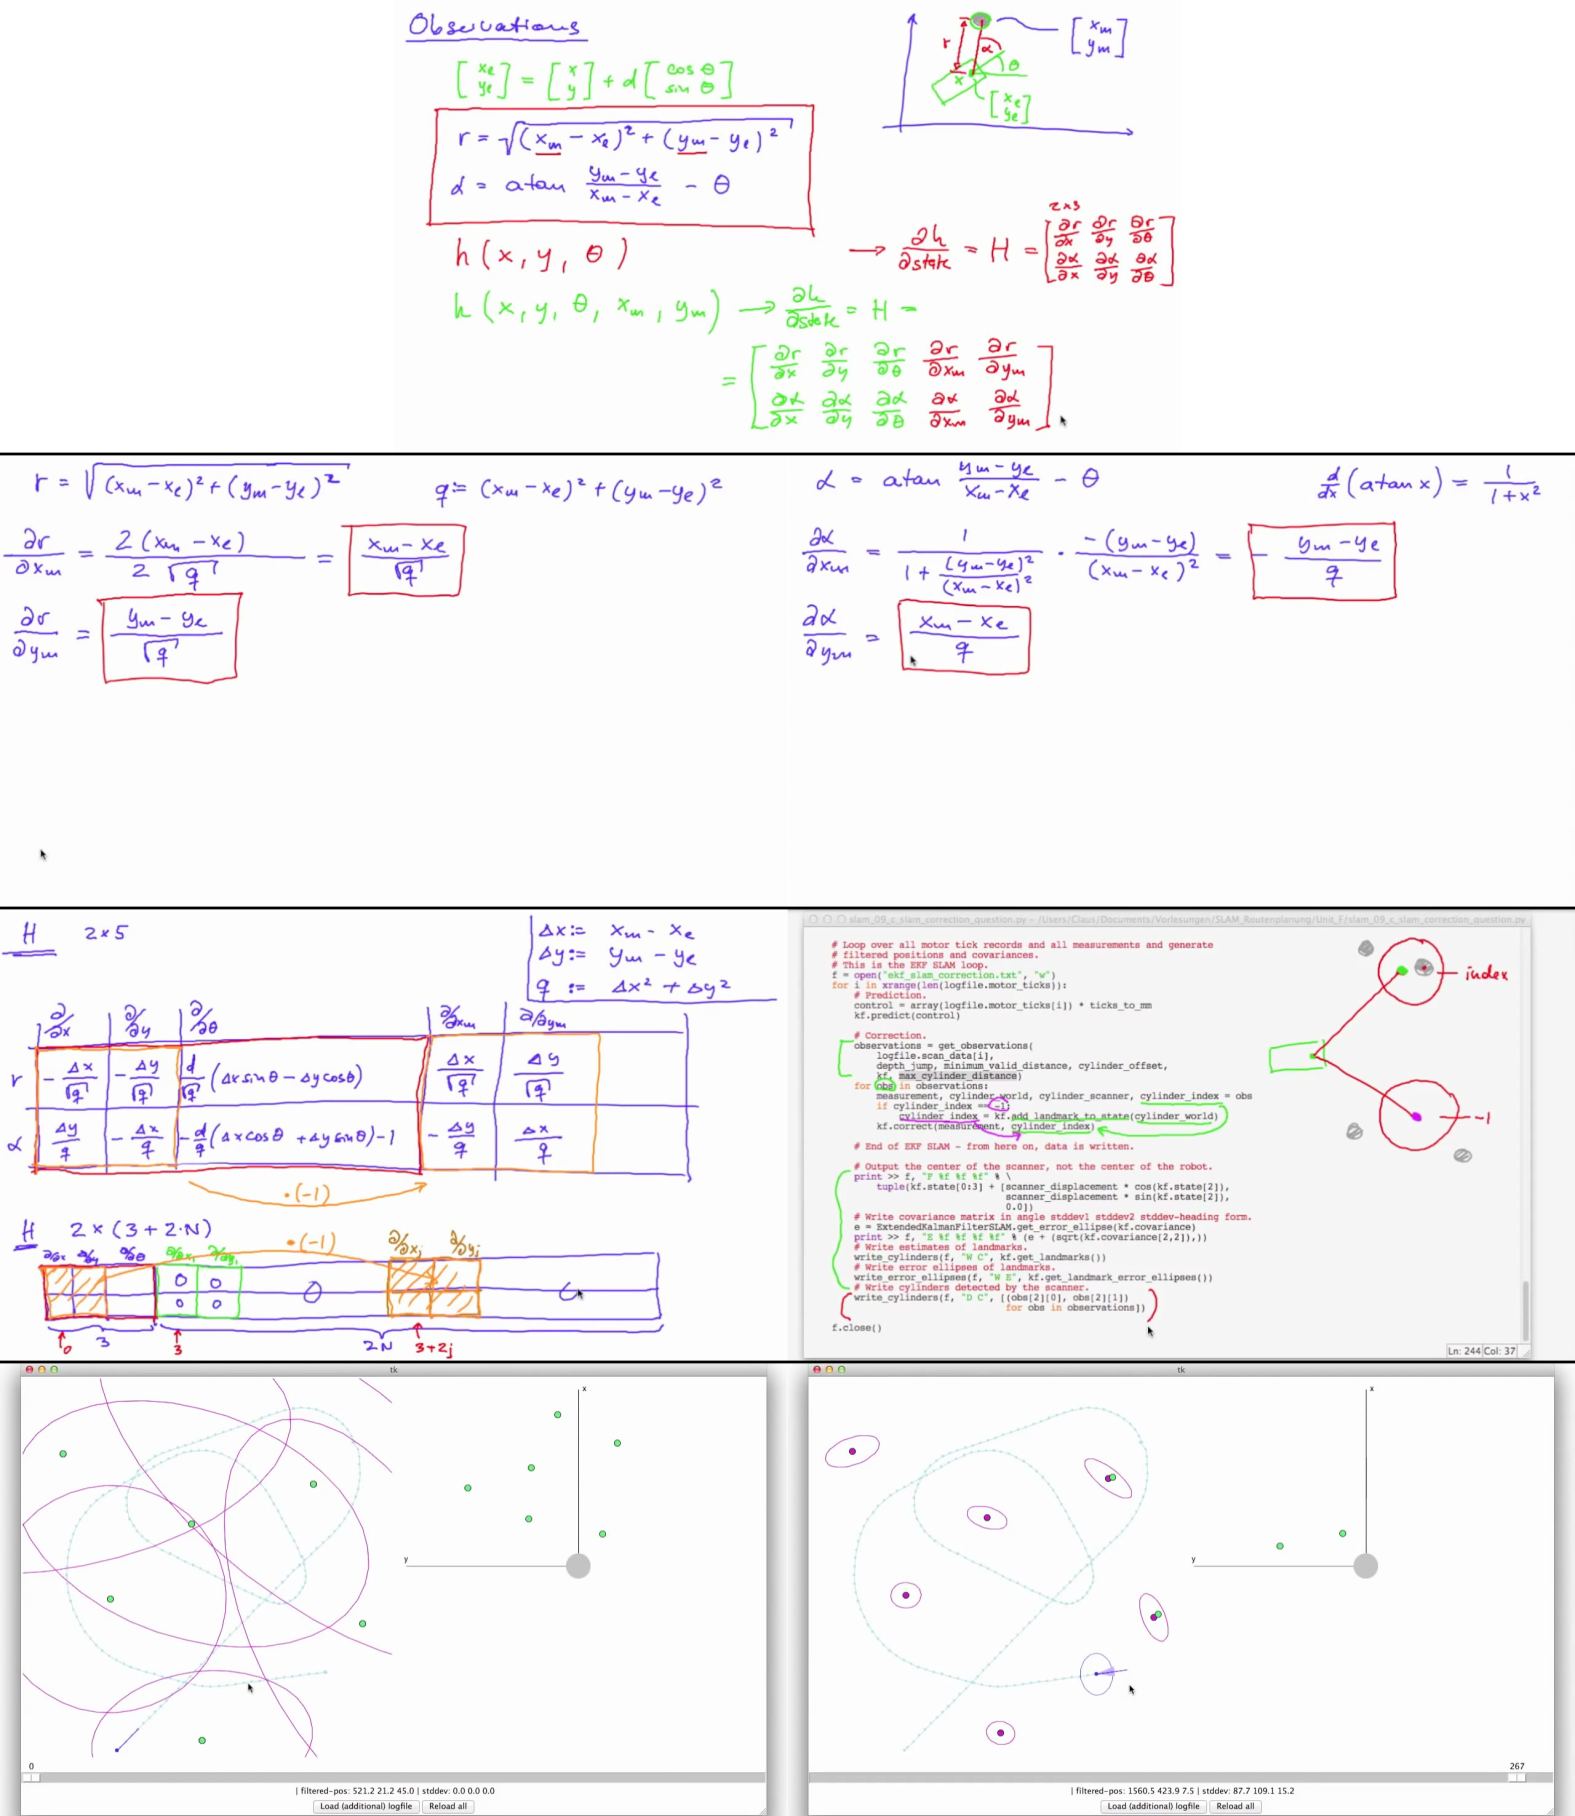 Observations
[x_e y_e] = [x y] + d [cos θ sin θ]
r = √((x_m − x_e)² + (y_m − y_e)²)
α = atan (y_m − y_e)/(x_m − x_e) − θ
h (x, y, θ)
→ ∂h/∂state = H = [∂r/∂x ∂r/∂y ∂r/∂θ
∂α/∂x ∂α/∂y ∂α/∂θ]
2×3
h (x, y, θ, x_m, y_m) → ∂h/∂state = H =
= [∂r/∂x ∂r/∂y ∂r/∂θ ∂r/∂x_m ∂r/∂y_m
∂α/∂x ∂α/∂y ∂α/∂θ ∂α/∂x_m ∂α/∂y_m]
r
α
θ
x
[x_m y_m]
[x_e y_e]
r = √((x_m − x_e)² + (y_m − y_e)²)
q := (x_m − x_e)² + (y_m − y_e)²
∂r/∂x_m = 2(x_m − x_e)/(2√q) = (x_m − x_e)/√q
∂r/∂y_m = (y_m − y_e)/√q
α = atan (y_m − y_e)/(x_m − x_e) − θ
d/dx (atan x) = 1/(1+x²)
∂α/∂x_m = 1/(1 + (y_m−y_e)²/(x_m−x_e)²) · −(y_m−y_e)/(x_m−x_e)² = − (y_m−y_e)/q
∂α/∂y_m = (x_m − x_e)/q
H 2×5
Δx := x_m − x_e
Δy := y_m − y_e
q := Δx² + Δy²
∂/∂x ∂/∂y ∂/∂θ ∂/∂x_m ∂/∂y_m
r −Δx/√q −Δy/√q d/√q (Δx sin θ − Δy cos θ) Δx/√q Δy/√q
α Δy/q −Δx/q −d/q (Δx cos θ + Δy sin θ) −1 −Δy/q Δx/q
·(−1)
H 2 × (3 + 2·N)
·(−1)
∂/∂x ∂/∂y ∂/∂θ ∂/∂x₁ ∂/∂y₁ ∂/∂x_j ∂/∂y_j
0 0 0
0 0
0 3 3 2N 3+2j
slam_09_c_slam_correction_question.py - /Users/Claus/Documents/Vorlesungen/SLAM_Routenplanung/Unit_F/slam_09_c_slam_correction_question.py
# Loop over all motor tick records and all measurements and generate
# filtered positions and covariances.
# This is the EKF SLAM loop.
f = open("ekf_slam_correction.txt", "w")
for i in xrange(len(logfile.motor_ticks)):
# Prediction.
control = array(logfile.motor_ticks[i]) * ticks_to_mm
kf.predict(control)
# Correction.
observations = get_observations(
logfile.scan_data[i],
depth_jump, minimum_valid_distance, cylinder_offset,
kf, max_cylinder_distance)
for obs in observations:
measurement, cylinder_world, cylinder_scanner, cylinder_index = obs
if cylinder_index == -1:
cylinder_index = kf.add_landmark_to_state(cylinder_world)
kf.correct(measurement, cylinder_index)
# End of EKF SLAM - from here on, data is written.
# Output the center of the scanner, not the center of the robot.
print >> f, "F %f %f %f" % \
tuple(kf.state[0:3] + [scanner_displacement * cos(kf.state[2]),
scanner_displacement * sin(kf.state[2]),
0.0])
# Write covariance matrix in angle stddev1 stddev2 stddev-heading form.
e = ExtendedKalmanFilterSLAM.get_error_ellipse(kf.covariance)
print >> f, "E %f %f %f %f" % (e + (sqrt(kf.covariance[2,2]),))
# Write estimates of landmarks.
write_cylinders(f, "W C", kf.get_landmarks())
# Write error ellipses of landmarks.
write_error_ellipses(f, "W E", kf.get_landmark_error_ellipses())
# Write cylinders detected by the scanner.
write_cylinders(f, "D C", [(obs[2][0], obs[2][1])
for obs in observations])
f.close()
index
-1
Ln: 244 Col: 37
tk
x
y
0
| filtered-pos: 521.2 21.2 45.0 | stddev: 0.0 0.0 0.0
Load (additional) logfile Reload all
tk
x
y
267
| filtered-pos: 1560.5 423.9 7.5 | stddev: 87.7 109.1 15.2
Load (additional) logfile Reload all